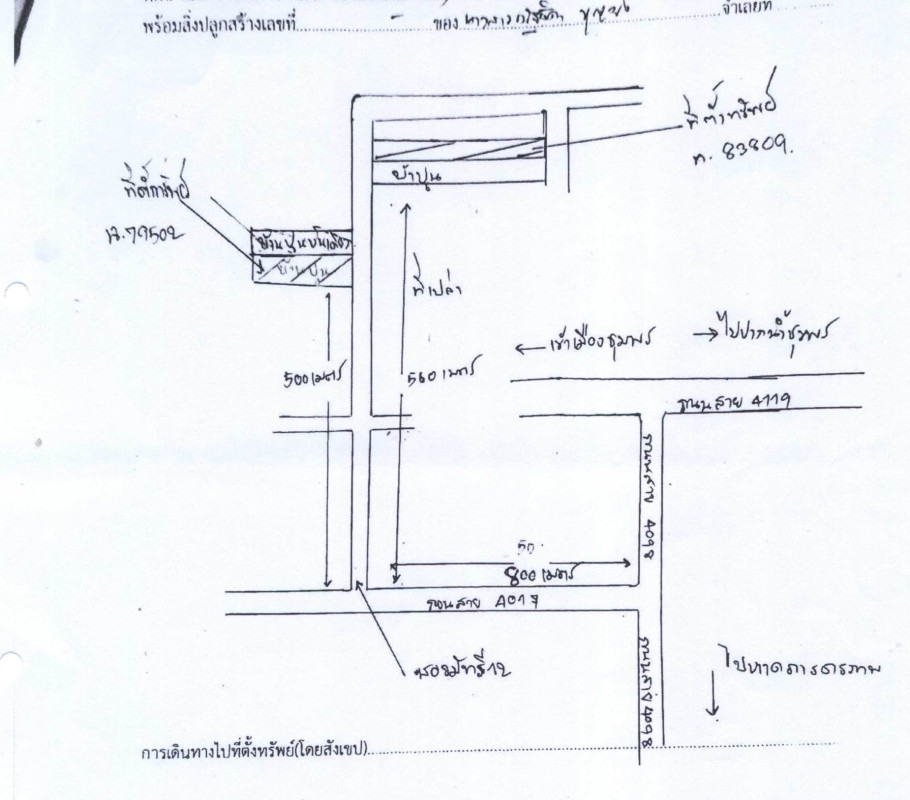 พร้อมสิ่งปลูกสร้างเลขที่ - ของ
จำเลยที่
ที่ตั้งทรัพย์
ฉ. 83809.
บ้านปูน
ที่ตั้งทรัพย์
79502
บ้านปูนชั้นเดียว
บ้านปูน
ที่เปล่า
← เข้าเมืองชุมพร
→ ไปปากน้ำชุมพร
500 เมตร
560 เมตร
ถนนสาย 4119
ถนนสาย 4098
50
800 เมตร
ถนนสาย 4017
ถนนสาย 4098
ไปหาดภารดรภาพ
การเดินทางไปที่ตั้งทรัพย์(โดยสังเขป)